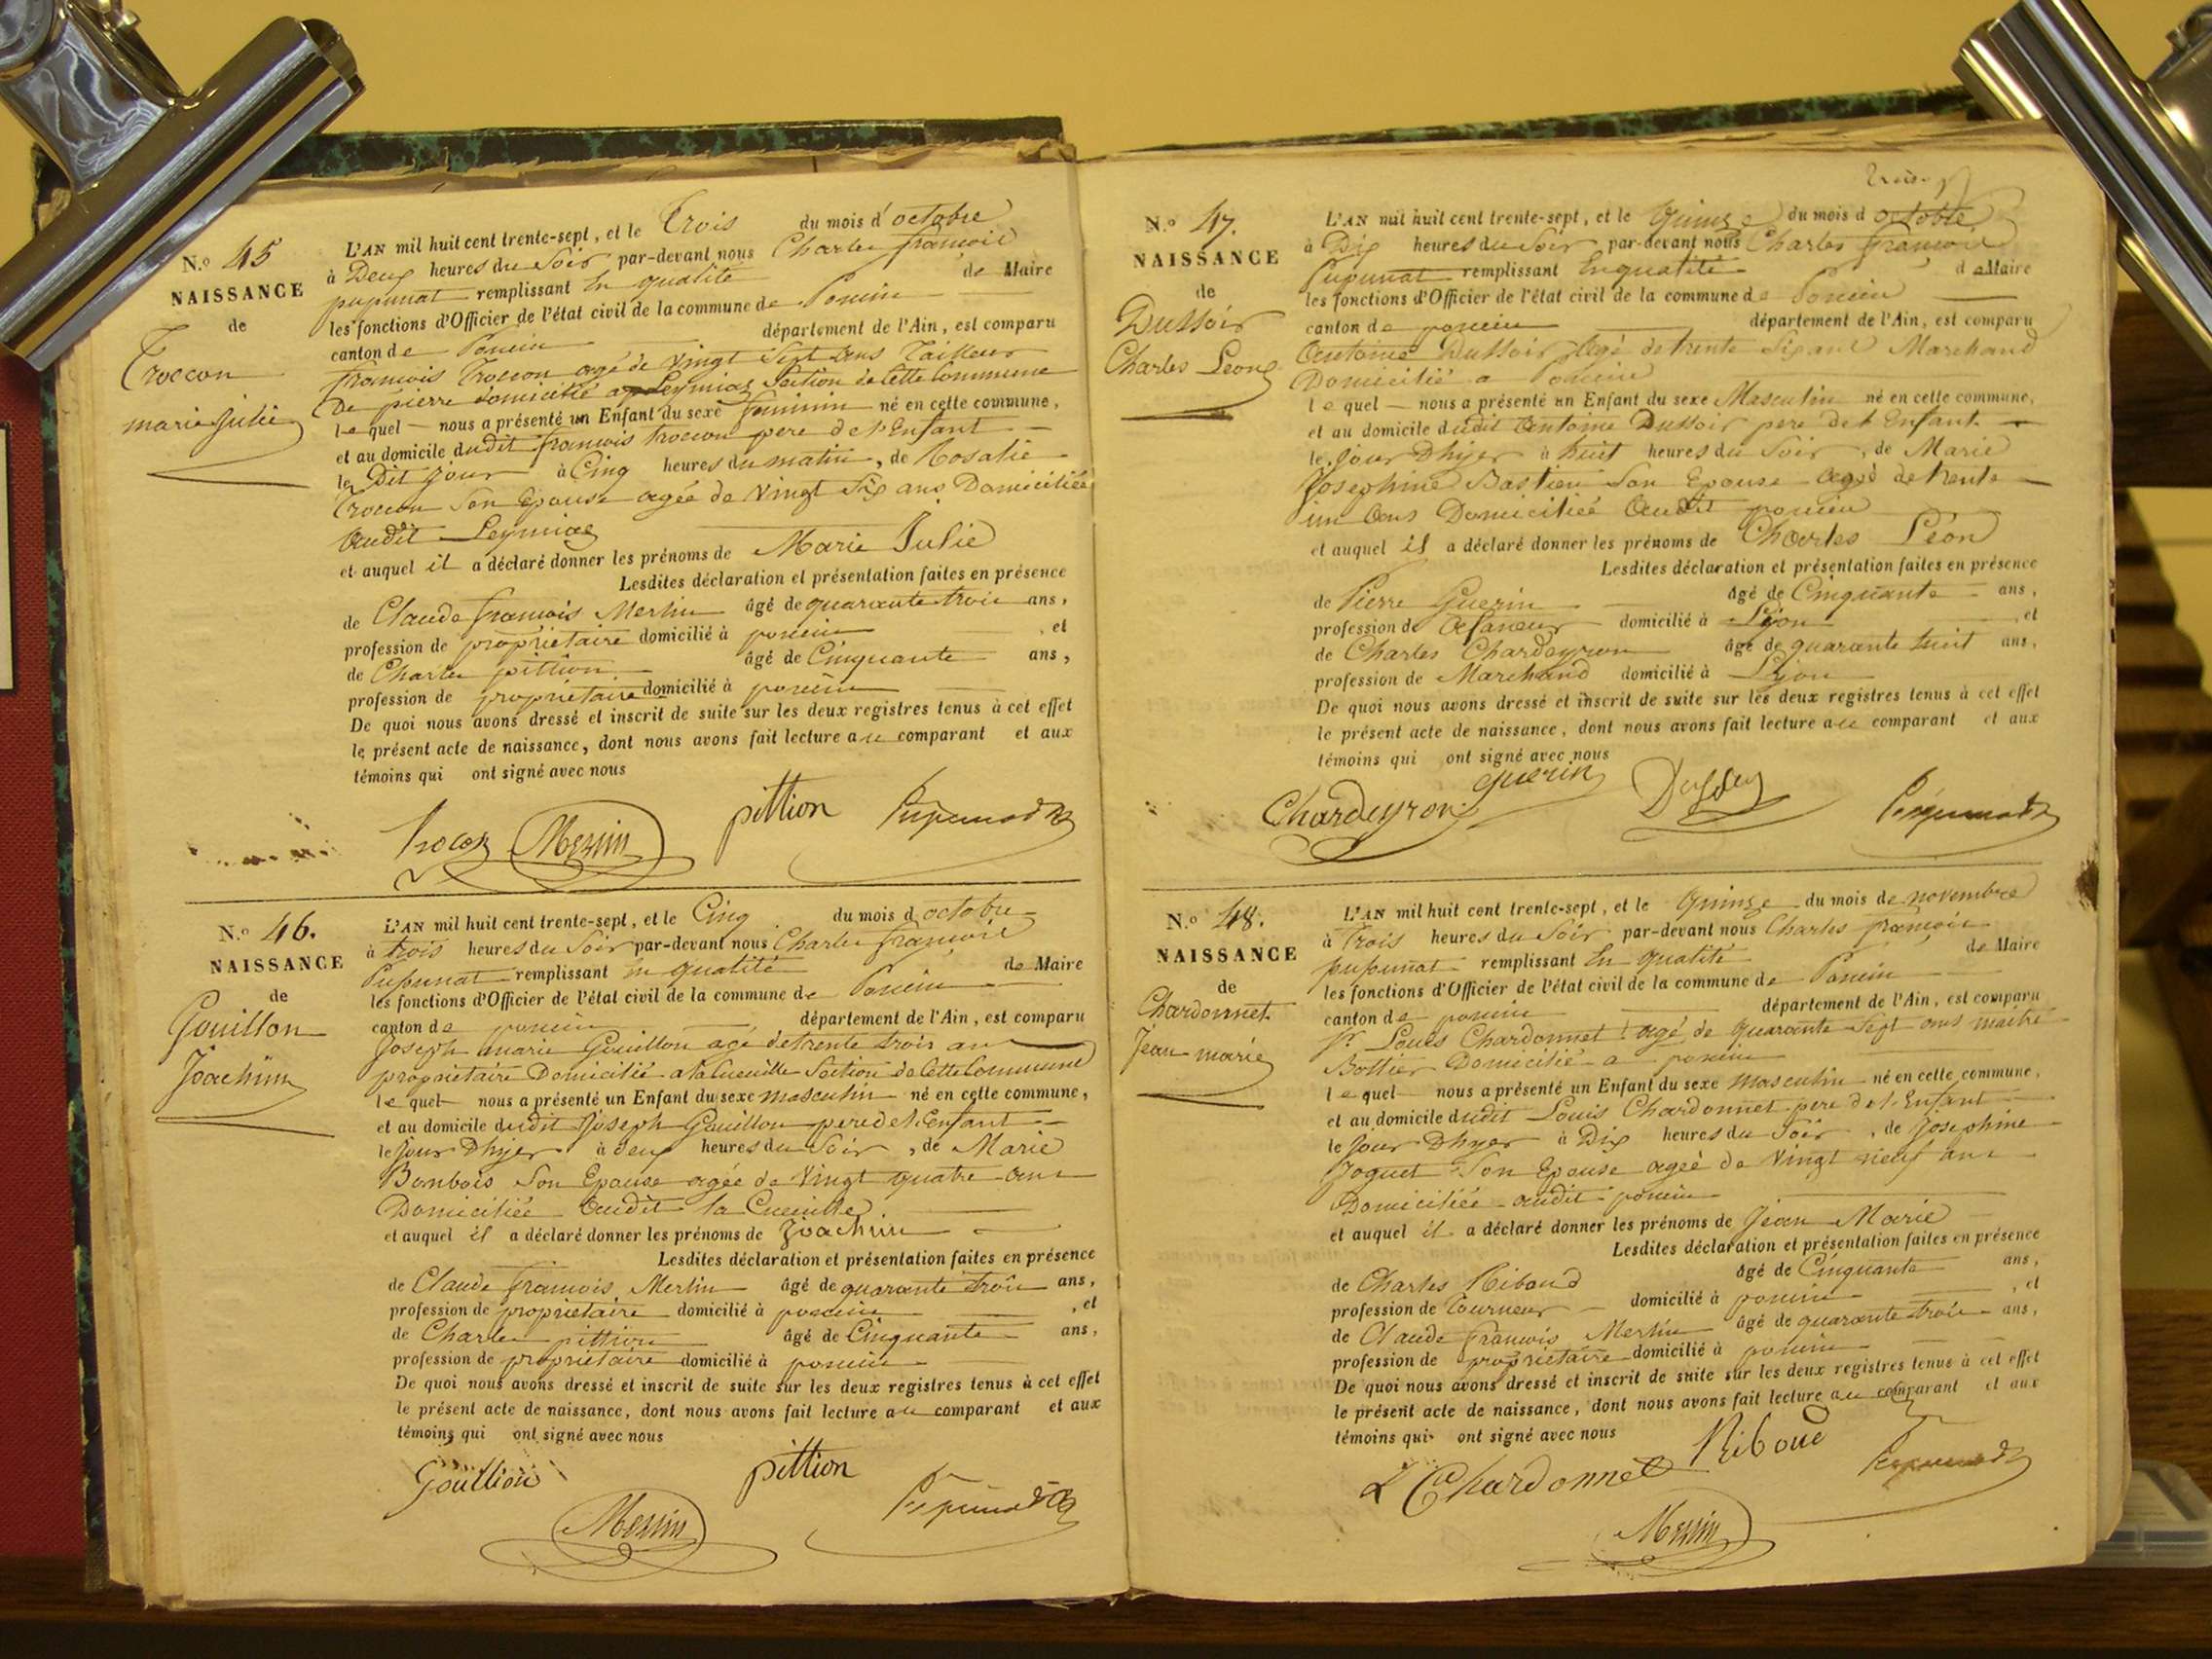 N.o 45
NAISSANCE
de
Troccon
marie Julie
L'AN mil huit cent trente-sept, et le Trois du mois d'octobre
à Deux heures du Soir par-devant nous Charles françois
pupunat remplissant En qualité de Maire
les fonctions d'Officier de l'état civil de la commune de Poncin
canton de Poncin département de l'Ain, est comparu
françois Troccon agé de Vingt Sept ans Tailleur
De pierre domicilié a Leymiaz Section de Cette Commune
lequel nous a présenté un Enfant du sexe feminin né en cette commune,
et au domicile dudit françois troccon pere de l'Enfant
le Dit jour à Cinq heures du matin, de Rosalie
Troccon Son Epouse agée de Vingt Six ans Domiciliée
audit Leymiaz
et auquel il a déclaré donner les prénoms de Marie Julie
Lesdites déclaration et présentation faites en présence
de Claude françois Merlin âgé de quarante trois ans,
profession de propriétaire domicilié à poncin, et
de Charles pittion âgé de Cinquante ans,
profession de propriétaire domicilié à poncin
De quoi nous avons dressé et inscrit de suite sur les deux registres tenus à cet effet
le présent acte de naissance, dont nous avons fait lecture au comparant et aux
témoins qui ont signé avec nous
Merlin pittion Pupunat
N.o 46.
NAISSANCE
de
Gouillon
Joachim
L'AN mil huit cent trente-sept, et le Cinq du mois d octobre
à trois heures du Soir par-devant nous Charles françois
Pupunat remplissant En qualité de Maire
les fonctions d'Officier de l'état civil de la commune de Poncin
canton de poncin département de l'Ain, est comparu
Joseph marie Gouillon agé de trente trois ans
propriétaire Domicilié a la Cueuille Section de Cette Commune
lequel nous a présenté un Enfant du sexe masculin né en cette commune,
et au domicile dudit Joseph Gouillon pere de l'Enfant
le jour Dhyer à deux heures du Soir, de Marie
Bonbois Son Epouse agée de Vingt quatre ans
Domiciliée audit la Cueuille
et auquel il a déclaré donner les prénoms de Joachim
Lesdites déclaration et présentation faites en présence
de Claude françois Merlin âgé de quarante trois ans,
profession de propriétaire domicilié à poncin, et
de Charles pittion âgé de Cinquante ans,
profession de propriétaire domicilié à poncin
De quoi nous avons dressé et inscrit de suite sur les deux registres tenus à cet effet
le présent acte de naissance, dont nous avons fait lecture au comparant et aux
témoins qui ont signé avec nous
Gouillon pittion
Merlin Pupunat
N.o 47.
NAISSANCE
de
Dussoir
Charles Leon
L'AN mil huit cent trente-sept, et le Quinze du mois d octobre
à Dix heures du Soir par-devant nous Charles François
Pupunat remplissant En qualité de Maire
les fonctions d'Officier de l'état civil de la commune de Poncin
canton de poncin département de l'Ain, est comparu
Antoine Dussoir agé de trente Six ans Marchand
Domicilié a Poncin
lequel nous a présenté un Enfant du sexe Masculin né en cette commune,
et au domicile dudit Antoine Dussoir pere de l'Enfant
le Jour Dhyer à huit heures du Soir, de Marie
Josephine Bastien Son Epouse Agée de trente
un Ans Domiciliée Audit poncin
et auquel il a déclaré donner les prénoms de Charles Léon
Lesdites déclaration et présentation faites en présence
de Pierre Guerin âgé de Cinquante ans,
profession de Afaneur domicilié à Lyon, et
de Charles Chardeyron âgé de quarante huit ans,
profession de Marchand domicilié à Lyon
De quoi nous avons dressé et inscrit de suite sur les deux registres tenus à cet effet
le présent acte de naissance, dont nous avons fait lecture au comparant et aux
témoins qui ont signé avec nous
Chardeyron guerin Pupunat
N.o 48.
NAISSANCE
de
Chardonnet
Jean marie
L'AN mil huit cent trente-sept, et le Quinze du mois de novembre
à Trois heures du Soir par-devant nous Charles françois
pupunat remplissant En qualité de Maire
les fonctions d'Officier de l'état civil de la commune de Poncin
canton de poncin département de l'Ain, est comparu
Sr. Louis Chardonnet agé de quarante Sept ans maitre
Bottier Domicilié a poncin
lequel nous a présenté un Enfant du sexe masculin né en cette commune,
et au domicile dudit Louis Chardonnet pere de l'Enfant
le Jour Dhyer à Dix heures du Soir, de Josephine
Joguet Son Epouse agée de Vingt neuf ans
Domiciliée audit poncin
et auquel il a déclaré donner les prénoms de Jean Marie
Lesdites déclaration et présentation faites en présence
de Charles Riboud âgé de Cinquante ans,
profession de Tourneur domicilié à poncin, et
de Claude François Merlin âgé de quarante trois ans,
profession de propriétaire domicilié à poncin
De quoi nous avons dressé et inscrit de suite sur les deux registres tenus à cet effet
le présent acte de naissance, dont nous avons fait lecture au comparant et aux
témoins qui ont signé avec nous
L Chardonnet Riboud Pupunat
Merlin